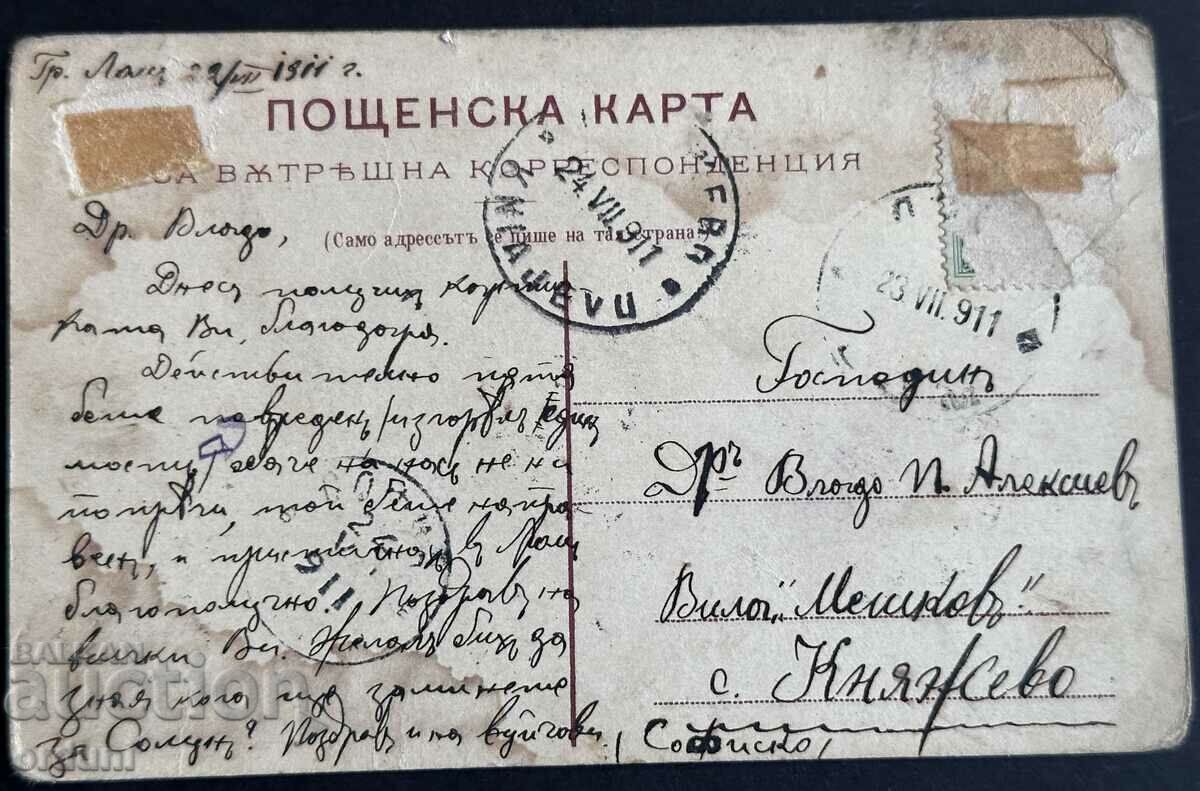 Гр. Лом 22/VII 1911 г.
ПОЩЕНСКА КАРТА
ЗА ВѪТРѢШНА КОРРЕСПОНДЕНЦИЯ
(Само адрессътъ се пише на тая страна)
Др. Владо,
Днес получих картич
ката Ви, благодаря.
Действително пътя
беше повреден /изгорѣлъ един
мостъ/ обаче на насъ не ни
попрѣчи, той беше напра
вен, и пристигнахъ в Лом
благополучно. Поздравъ на
всички Ви. Желалъ бихъ да
зная кога ще заминете
за Солунъ? Поздрав и на вуйчови.
Господинъ
Дръ Владо П. Алексиевъ
Вила „Мешковъ"
с. Княжево
(Софийско)
24.VII.911
23.VII.911
911
BALKAN
auction